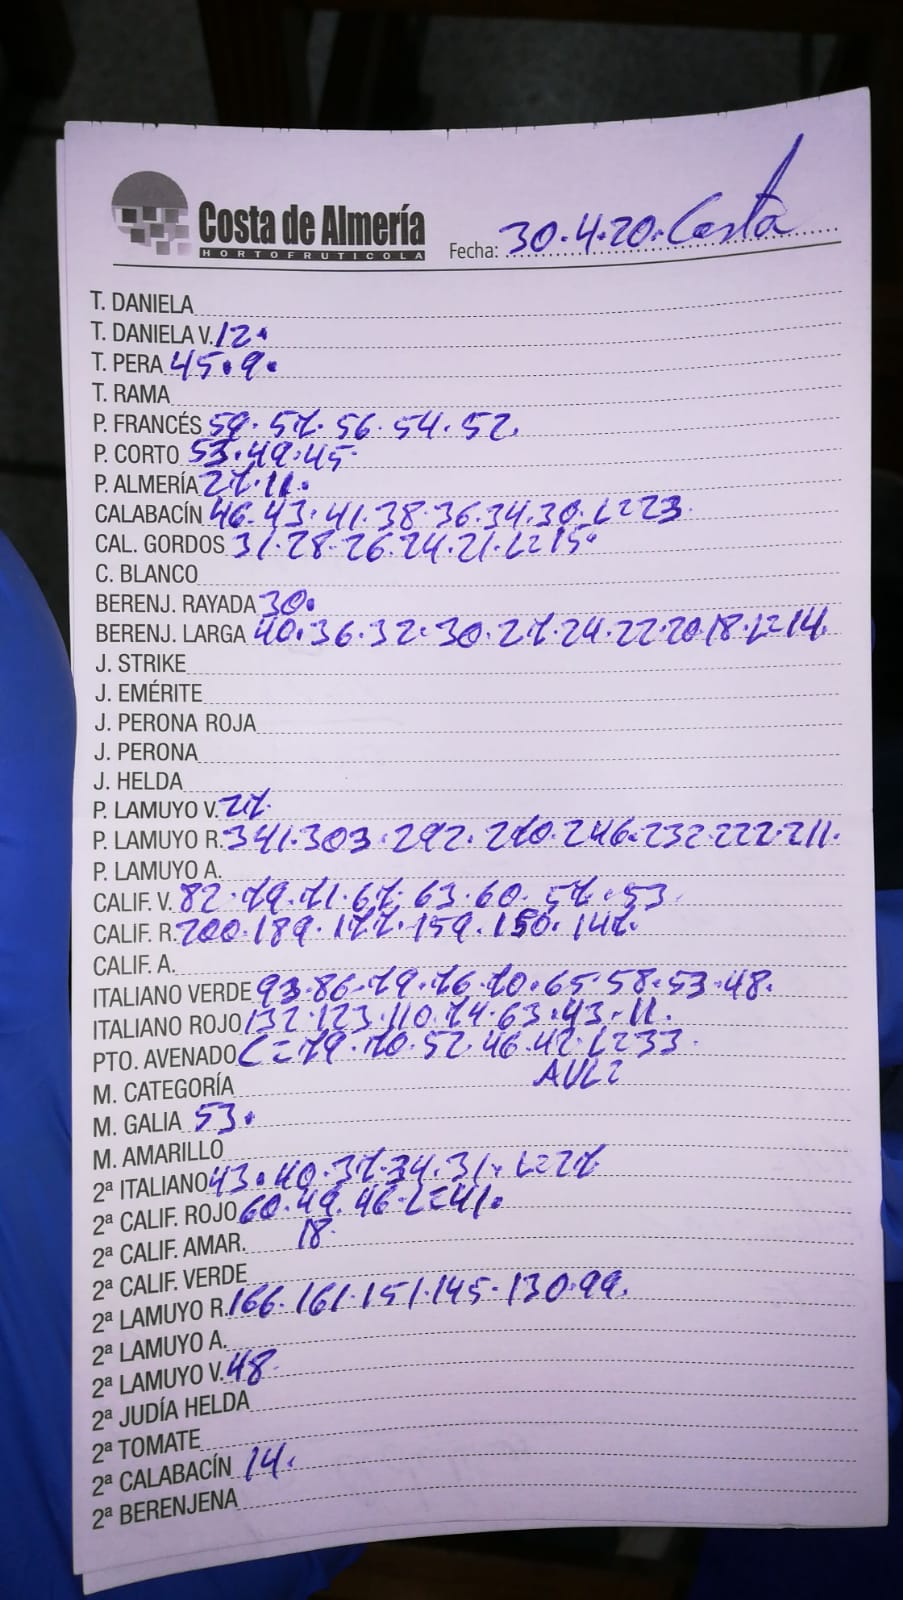 Costa de Almería
HORTOFRUTICOLA
Fecha: 30.4.20. Costa
T. DANIELA
T. DANIELA V. 12.
T. PERA 45.9.
T. RAMA
P. FRANCÉS 59. 57. 56. 54. 52.
P. CORTO 53.49.45
P. ALMERÍA 27.11.
CALABACÍN 46.43.41.38.36.34.30.L=23.
CAL. GORDOS 31.28.26.24.21.L=15.
C. BLANCO
BERENJ. RAYADA 30.
BERENJ. LARGA 40.36.32.30.27.24.22.20.18.L=14.
J. STRIKE
J. EMÉRITE
J. PERONA ROJA
J. PERONA
J. HELDA
P. LAMUYO V. 27.
P. LAMUYO R. 341.303.292.270.246.232.222.211.
P. LAMUYO A.
CALIF. V. 82.79.71.67.63.60.57.53.
CALIF. R. 200.189.177.159.150.147.
CALIF. A.
ITALIANO VERDE 93.86.79.76.70.65.58.53.48.
ITALIANO ROJO 132.123.110.74.63.43.11.
PTO. AVENADO C=79.70.52.46.42.L=33.
M. CATEGORÍA
M. GALIA 53.
M. AMARILLO
2ª ITALIANO 43.40.37.34.31.L=27
2ª CALIF. ROJO 60.49.46.L=41.
2ª CALIF. AMAR. 18.
2ª CALIF. VERDE
2ª LAMUYO R. 166.161.151.145.130.99.
2ª LAMUYO A.
2ª LAMUYO V. 48
2ª JUDÍA HELDA
2ª TOMATE
2ª CALABACÍN 14.
2ª BERENJENA